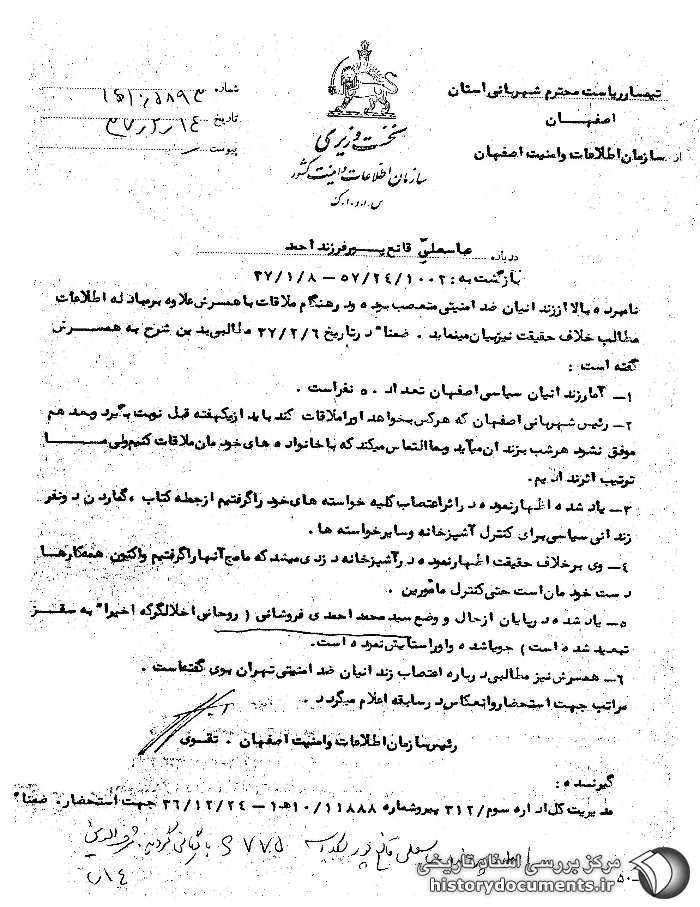 تیمسار ریاست محترم شهربانی استان
اصفهـــان
از سازمان اطلاعات و امنیت اصفهان
نخست وزیری
سازمان اطلاعات و امنیت کشور
س.ا.و.ا.ک
شماره
تاریخ ۳۷/۲/۱۴
پیوست
درباره عباسعلی قانع بسیر فرزند احمد
بازگشت به: ۵۷/۲۴/۱۰۰۲ – ۳۷/۱/۸
نامبرده بالا از زندانیان ضد امنیتی متعصب بوده و در هنگام ملاقات با همسرش علاوه بر مبادله اطلاعات
مطالب خلاف حقیقت نیز بیان مینماید . ضمنا" در تاریخ ۳۷/۲/۶ مطالبی بدین شرح به همسرش
گفته است :
۱– آمار زندانیان سیاسی اصفهان تعداد ۵۰ نفر است .
۲– رئیس شهربانی اصفهان که هرکس بخواهد او را ملاقات کند باید از یکهفته قبل نوبت بگیرد و بعد هم
موفق نشود هر شب بزندان میآید و بما التماس میکند که با خانواده های خودمان ملاقات کنیم ولی مـــا
ترتیب اثر نداریم.
۳– یاد شده اظهار نموده در اثر اعتصاب کلیه خواسته های خود را گرفتیم از جمله کتاب ، گماردن دو نفر
زندانی سیاسی برای کنترل آشپزخانه و سایر خواسته ها .
۴– وی برخلاف حقیقت اظهار نموده در آشپزخانه دزدی میشد که ما مچ آنها را گرفتیم و اکنون همه کارها
دست خودمان است حتی کنترل مأمورین .
۵– یاد شده در پایان از حال و وضع سید محمد احمدی فروشانی ( روحانی اخلالگر که اخیرا" به سقــز
تبعید شده است ) جویا شده و او را ستایش نموده است.
۶– همسرش نیز مطالبی درباره اعتصاب زندانیان ضد امنیتی تهران بوی گفته است .
مراتب جهت استحضار و انعکاس در سابقه اعلام میگردد .
رئیس سازمان اطلاعات و امنیت اصفهان . تقوی
گیرنده :
مدیریت کل اداره سوم/۳۱۲ پیرو شماره ۱۰/۱۱۸۸۸هـ۱ – ۳۶/۱۲/۲۴ جهت استحضار. ضمنا"
۵۰
مرکز بررسی اسناد تاریخی
historydocuments.ir